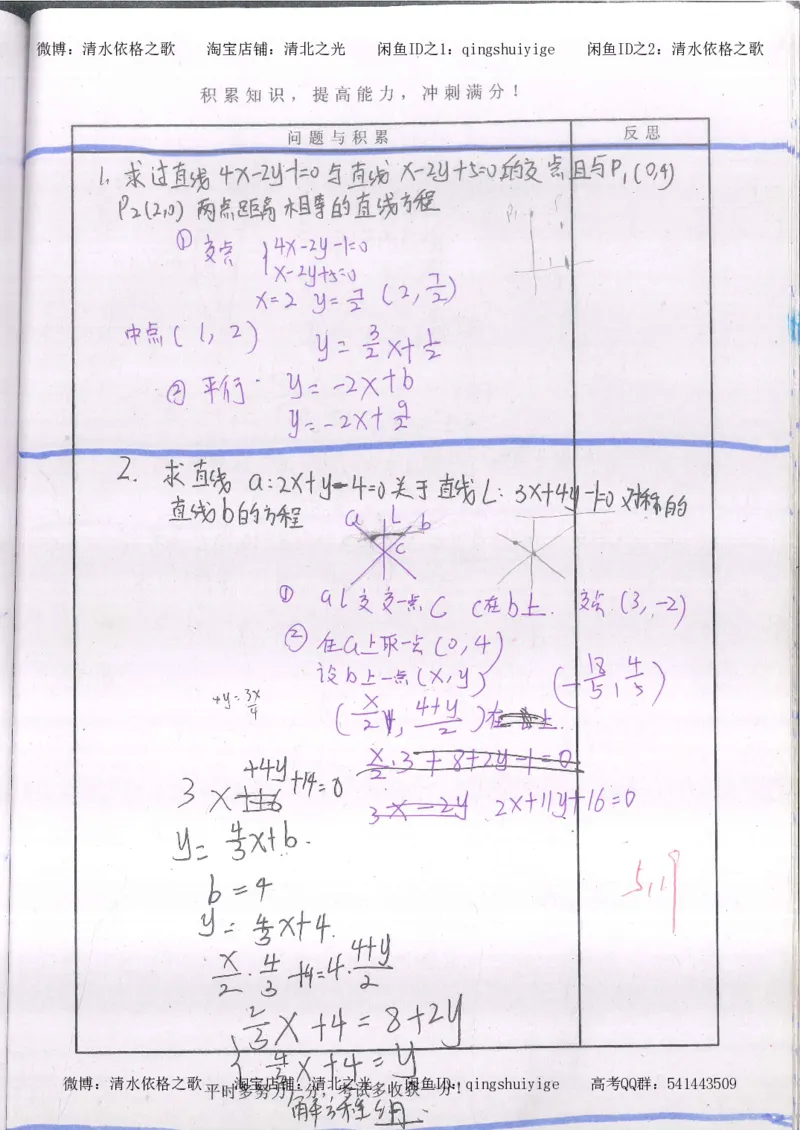 微博：清水依格之歌 淘宝店铺：清北之光 闲鱼ID之1：qingshuiyige 闲鱼ID之2：清水依格之歌
积累知识，提高能力，冲刺满分！
问题与积累 反思
1. 求过直线 4x-2y-1=0 与直线 x-2y+5=0的交点且与P₁(0,4)
P₂(2,0) 两点距离相等的直线方程
P₁
① 交点 {4x-2y-1=0
x-2y+5=0
x=2 y=7/2 (2, 7/2)
中点(1, 2) y= 3/2 x+ 1/2
② 平行 y= -2x+b
y= -2x+ 9/2
2. 求直线 a:2x+y-4=0关于直线L: 3x+4y-1=0 对称的
直线b的方程
a L b
C
① a L 交 交一点 C C在b上. 交点 (3, -2)
② 在a上取一点 (0, 4)
设b上一点 (x, y) (-18/5, 4/5)
+y= 3x/4
(x/2, 4+y/2) 在 上.
x/2 ·3 + 8+2y-1=0
3x +4y +14=0
3x-2y 2x+11y+16=0
y= 4/3 x+b.
b=4
5,19
y= 4/3 x+4.
x/2 · 4/3 +4=4· 4+y/2
{2/3 x +4 = 8+2y
4/3 x +4 = y
微博：清水依格之歌 淘宝店铺：清北之光 闲鱼ID：qingshuiyige 高考QQ群：541443509
平时多努力一分，考试多收获一分！
解方程组.